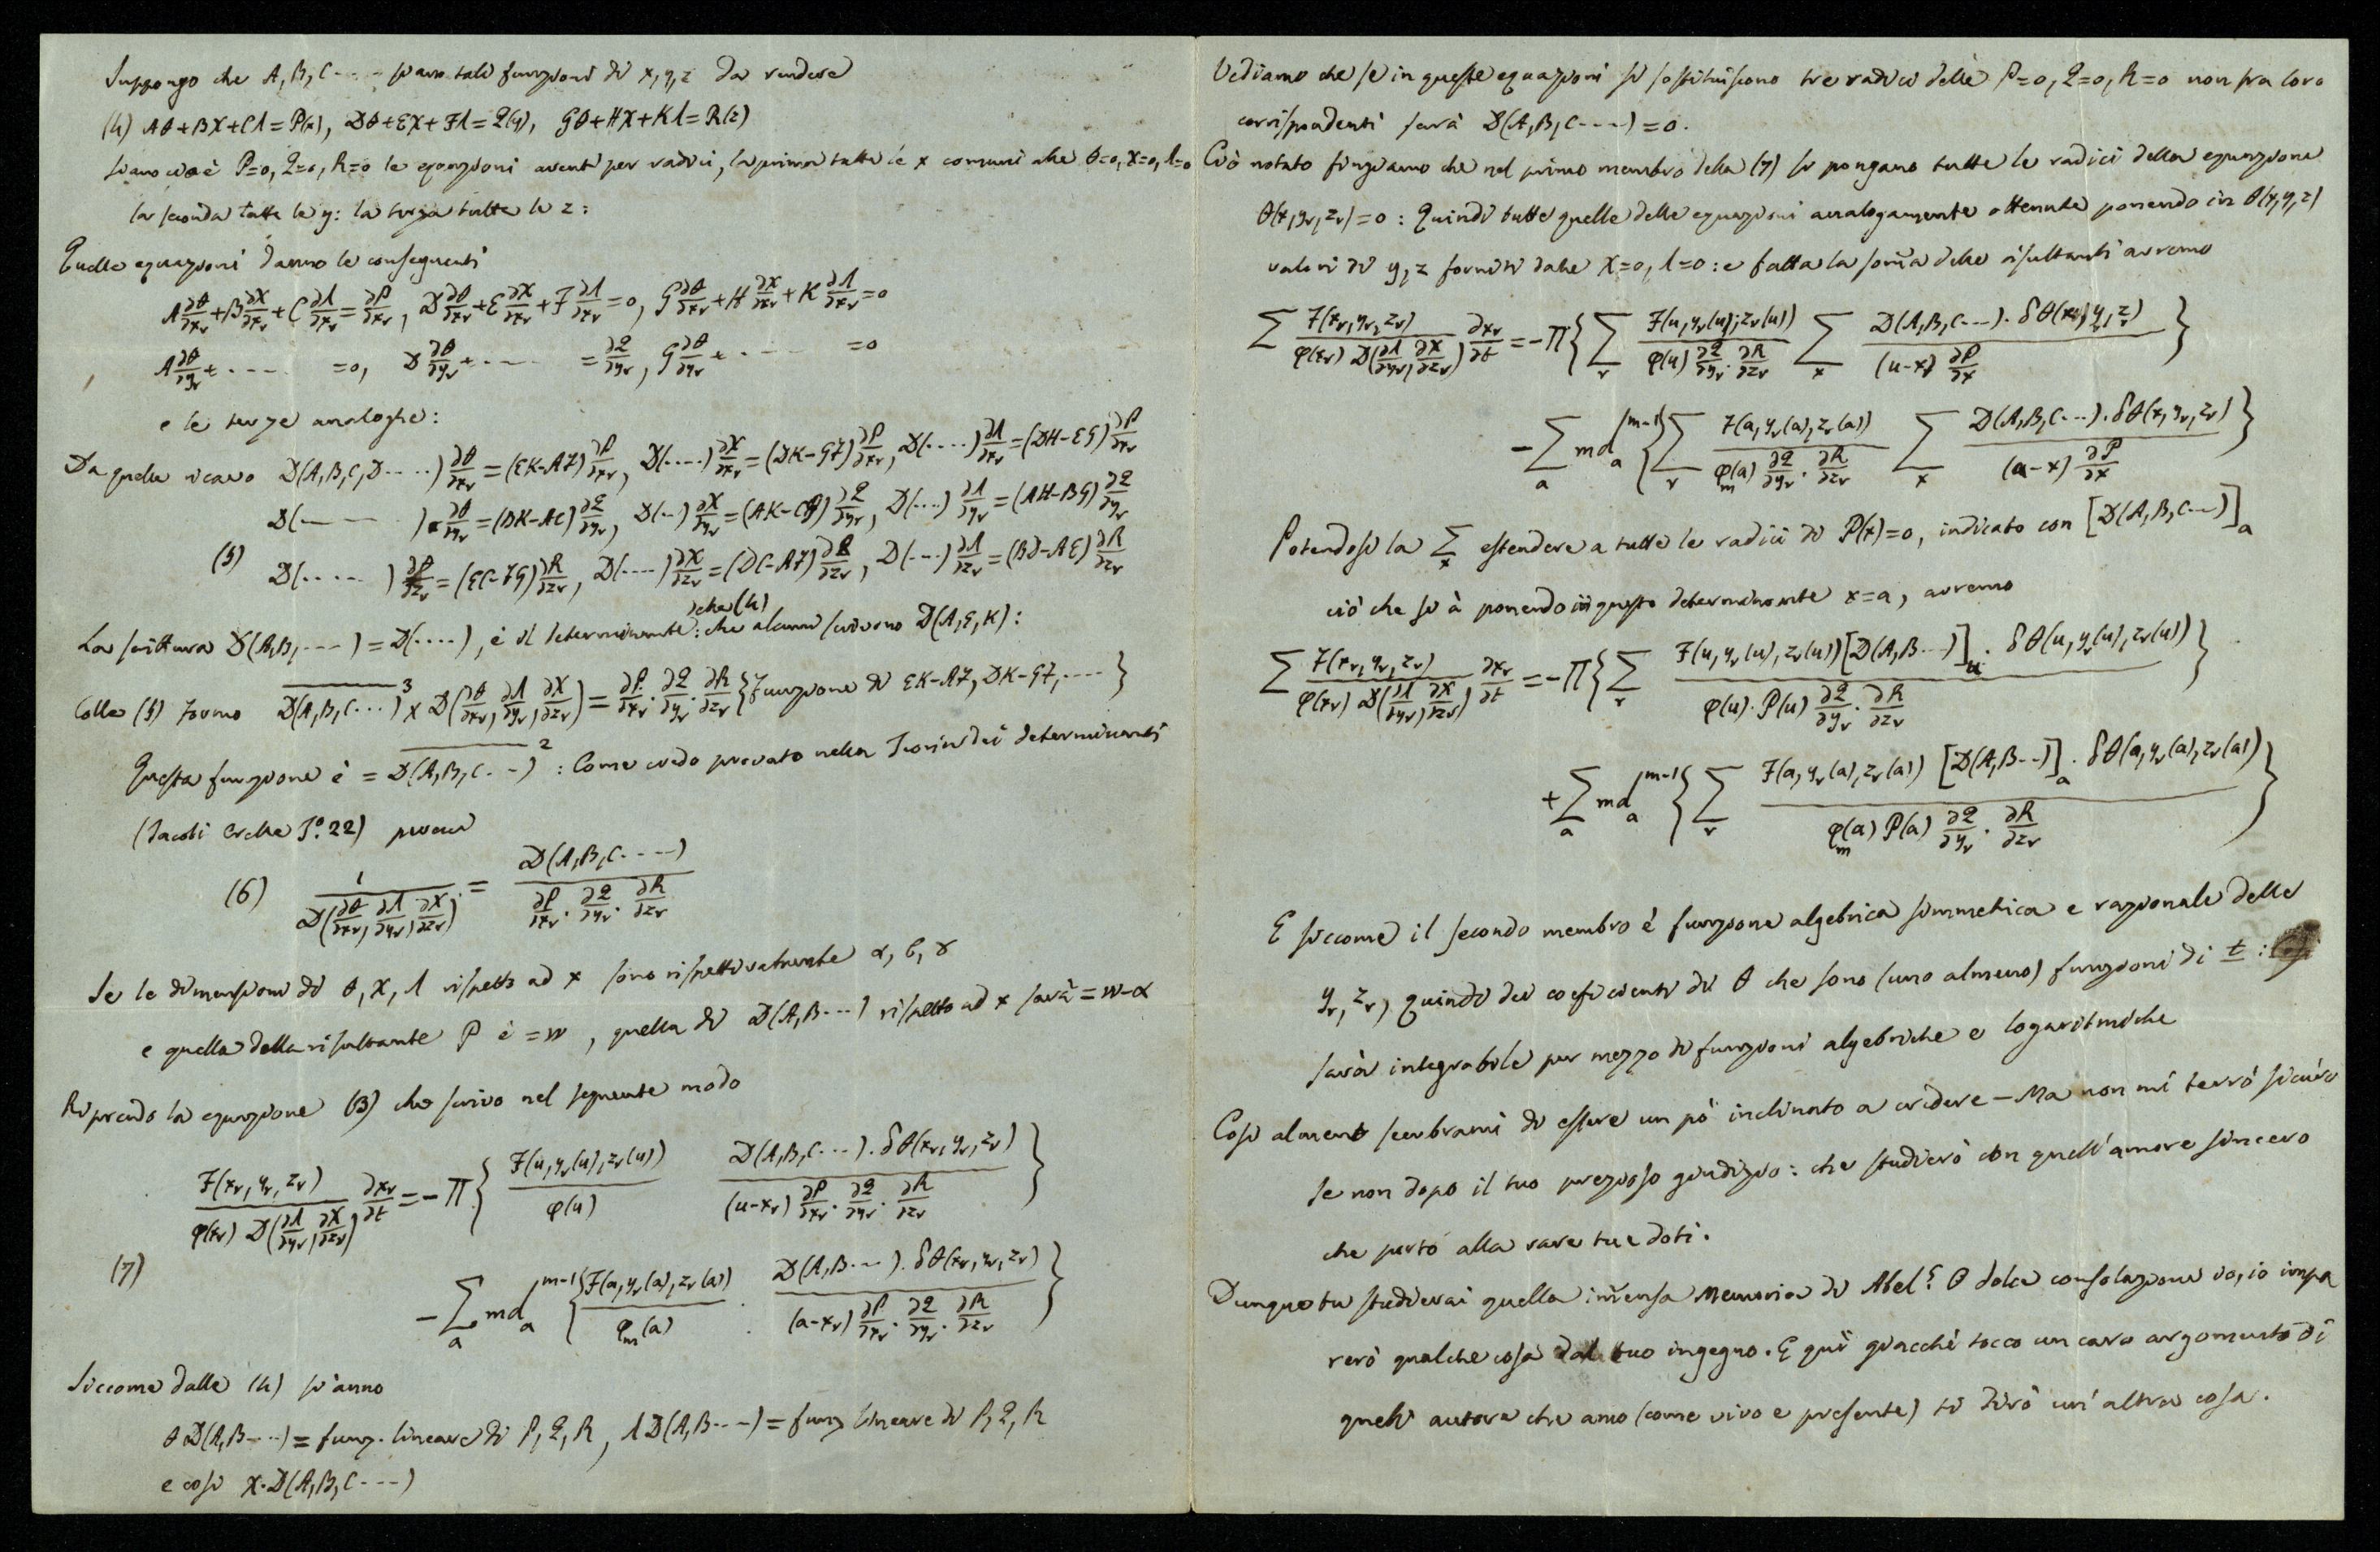 Suppongo che A, B, C---- siano tali funzioni di x, y, z da rendere
(4) Aθ+Bχ+Cλ=P(x), Dθ+Eχ+Fλ=Q(y), Gθ+Hχ+Kλ=R(z)
siano cioè P=0, Q=0, R=0 le equazioni aventi per radici, la prima tutte le x comuni alle θ=0, χ=0, λ=0
la seconda tutte le y: la terza tutte le z:
Quelle equazioni danno le conseguenti
A ∂θ/∂xᵣ + B ∂χ/∂xᵣ + C ∂λ/∂xᵣ = ∂P/∂xᵣ, D ∂θ/∂xᵣ + E ∂χ/∂xᵣ + F ∂λ/∂xᵣ = 0, G ∂θ/∂xᵣ + H ∂χ/∂xᵣ + K ∂λ/∂xᵣ = 0
A ∂θ/∂yᵣ + ----- =0, D ∂θ/∂yᵣ + ---- = ∂Q/∂yᵣ, G ∂θ/∂yᵣ + ---- =0
e le terze analoghe:
Da quelle ricavo D(A,B,C,D-----) ∂θ/∂xᵣ = (EK-AF) ∂P/∂xᵣ, D(----) ∂χ/∂xᵣ = (DK-GF) ∂P/∂xᵣ, D(----) ∂λ/∂xᵣ = (DH-EG) ∂P/∂xᵣ
D(-------) ∂θ/∂yᵣ = (BK-AC) ∂Q/∂yᵣ, D(--) ∂χ/∂yᵣ = (AK-CG) ∂Q/∂yᵣ, D(---) ∂λ/∂yᵣ = (AH-BG) ∂Q/∂yᵣ
(5) D(-----) ∂P/∂zᵣ = (EC-FG) ∂R/∂zᵣ, D(----) ∂χ/∂zᵣ = (DC-AF) ∂R/∂zᵣ, D(---) ∂λ/∂zᵣ = (BD-AE) ∂R/∂zᵣ
La scittura D(A,B,---) = D(----), è il determinante: che alcuni scrivono D(A,E,K):
Colle (5) formo D(A,B,C---)³ × D(∂θ/∂xᵣ, ∂λ/∂yᵣ, ∂χ/∂zᵣ) = ∂P/∂xᵣ · ∂Q/∂yᵣ · ∂R/∂zᵣ {funzione di EK-AF, DK-GF, ----}
Questa funzione è = D(A,B,C--)²: Come credo provato nella Teoria dei determinanti
(Jacobi Crelle Tº. 22)
(6) 1/D(∂θ/∂xᵣ, ∂λ/∂yᵣ, ∂χ/∂zᵣ) = D(A,B,C----)/(∂P/∂xᵣ · ∂Q/∂yᵣ · ∂R/∂zᵣ)
Se le dimensioni di θ, χ, λ rispetto ad x sono rispettivamente α, β, γ
e quella della risultante P è =w, quella di D(A,B---) rispetto ad x sarà = w-α
Riprendo la equazione (3) che scrivo nel seguente modo
F(xᵣ,yᵣ,zᵣ)/(φ(xᵣ) D(∂λ/∂yᵣ, ∂χ/∂zᵣ)) ∂xᵣ/∂t = -Π{ F(u,yᵣ(u),zᵣ(u))/φ(u) D(A,B,C---)·δθ(xᵣ,yᵣ,zᵣ)/((u-xᵣ) ∂P/∂xᵣ · ∂Q/∂yᵣ · ∂R/∂zᵣ) }
(7) -Σₐ mdₐᵐ⁻¹{ F(a,yᵣ(a),zᵣ(a))/φₘ(a) · D(A,B---)·δθ(xᵣ,yᵣ,zᵣ)/((a-xᵣ) ∂P/∂xᵣ · ∂Q/∂yᵣ · ∂R/∂zᵣ) }
Siccome dalle (4) si anno
θD(A,B----) = funz. lineare di P, Q, R, λD(A,B---) = funz lineare di P, Q, R
e così χ·D(A,B,C---)
Vediamo che se in queste equazioni si sostituiscono tre radici delle P=0, Q=0, R=0 non fra loro
corrispondenti sarà D(A,B,C----)=0.
Ciò notato fingiamo che nel primo membro della (7) si pongano tutte le radici della equazione
θ(x,yᵣ,zᵣ)=0: Quindi tutte quelle delle equazioni analogamente ottenute ponendo in θ(x,y,z)
valori di y, z forniti dalle χ=0, λ=0: e fatta la som̃a delle risultanti avremo
Σ F(xᵣ,yᵣ,zᵣ)/(φ(xᵣ) D(∂λ/∂yᵣ, ∂χ/∂zᵣ)) ∂xᵣ/∂t = -Π{ Σᵣ F(u,yᵣ(u),zᵣ(u))/(φ(u) ∂Q/∂yᵣ · ∂R/∂zᵣ) Σₓ D(A,B,C---)·δθ(x,yᵣ,zᵣ)/((u-x) ∂P/∂x) }
-Σₐ mdₐᵐ⁻¹{ Σᵣ F(a,yᵣ(a),zᵣ(a))/(φₘ(a) ∂Q/∂yᵣ · ∂R/∂zᵣ) Σₓ D(A,B,C---)·δθ(x,yᵣ,zᵣ)/((a-x) ∂P/∂x) }
Potendosi la Σₓ estendere a tutte le radici di P(x)=0, indicato con [D(A,B,C---)]ₐ
ciò che si à ponendo in questo determinante x=a, avremo
Σ F(xᵣ,yᵣ,zᵣ)/(φ(xᵣ) D(∂λ/∂yᵣ, ∂χ/∂zᵣ)) ∂xᵣ/∂t = -Π{ Σᵣ F(u,yᵣ(u),zᵣ(u))[D(A,B---)]ᵤ · δθ(u,yᵣ(u),zᵣ(u))/(φ(u)·P(u) ∂Q/∂yᵣ · ∂R/∂zᵣ) }
+Σₐ mdₐᵐ⁻¹{ Σᵣ F(a,yᵣ(a),zᵣ(a)) [D(A,B--)]ₐ · δθ(a,yᵣ(a),zᵣ(a))/(φₘ(a) P(a) ∂Q/∂yᵣ · ∂R/∂zᵣ) }
E siccome il secondo membro è funzione algebrica simmetrica e razionale delle
yᵣ, zᵣ, quindi dei coeficienti di θ che sono (uno almeno) funzioni di t:
sarà integrabile per mezzo di funzioni algebriche e logaritmiche
Così almeno sembrami di essere un pò inclinato a credere – Ma non mi terrò sicuro
se non dopo il tuo prezioso giudizio: che studierò con quell'amore sincero
che porto alla rare tue doti.
Dunque tu studierai quella im̃ensa Memoria di Abel? O dolce consolazione io, io impa
rerò qualche cosa dal tuo ingegno. E quì giacchè tocco un caro argomento di
quell' autore che amo (come vivo e presente) ti dirò un' altra cosa.